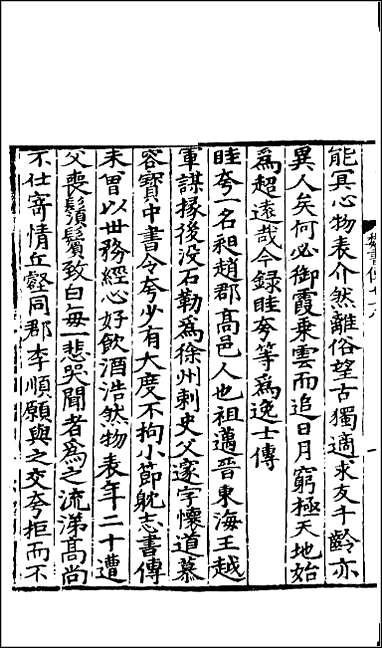 能冥心物表介然離俗望古獨適求友千齡亦
異人矣何必御霞乗雲而追日月窮極天地始
爲超逺哉今録眭夸等爲逸士傳
眭夸一名昶趙郡髙邑人也祖邁晉東海王越
軍謀掾後没石勒爲徐州刺史父邃字懷道慕
容寳中書令夸少有大度不拘小節躭志書傳
未曽以世務經心好飲酒浩然物表年二十遭
父喪鬚鬢致白每一悲哭聞者爲之流涕髙尚
不仕寄情丘壑同郡李順願與之交夸拒而不